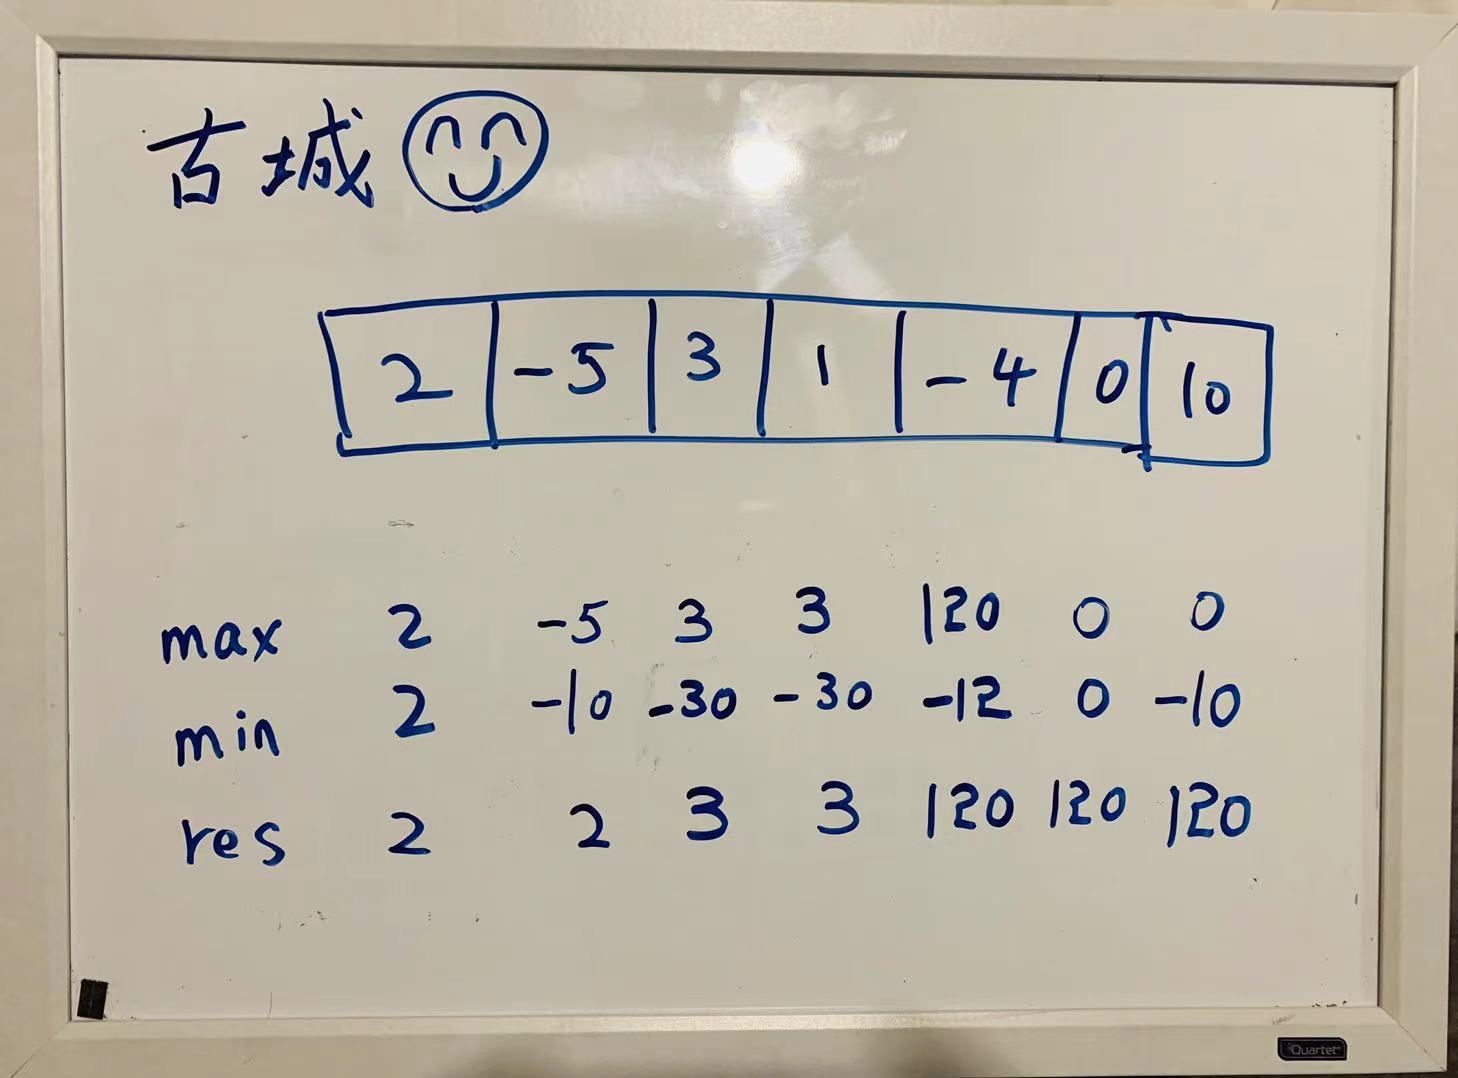 古城
2 -5 3 1 -4 0 10
max 2 -5 3 3 120 0 0
min 2 -10 -30 -30 -12 0 -10
res 2 2 3 3 120 120 120
Quartet